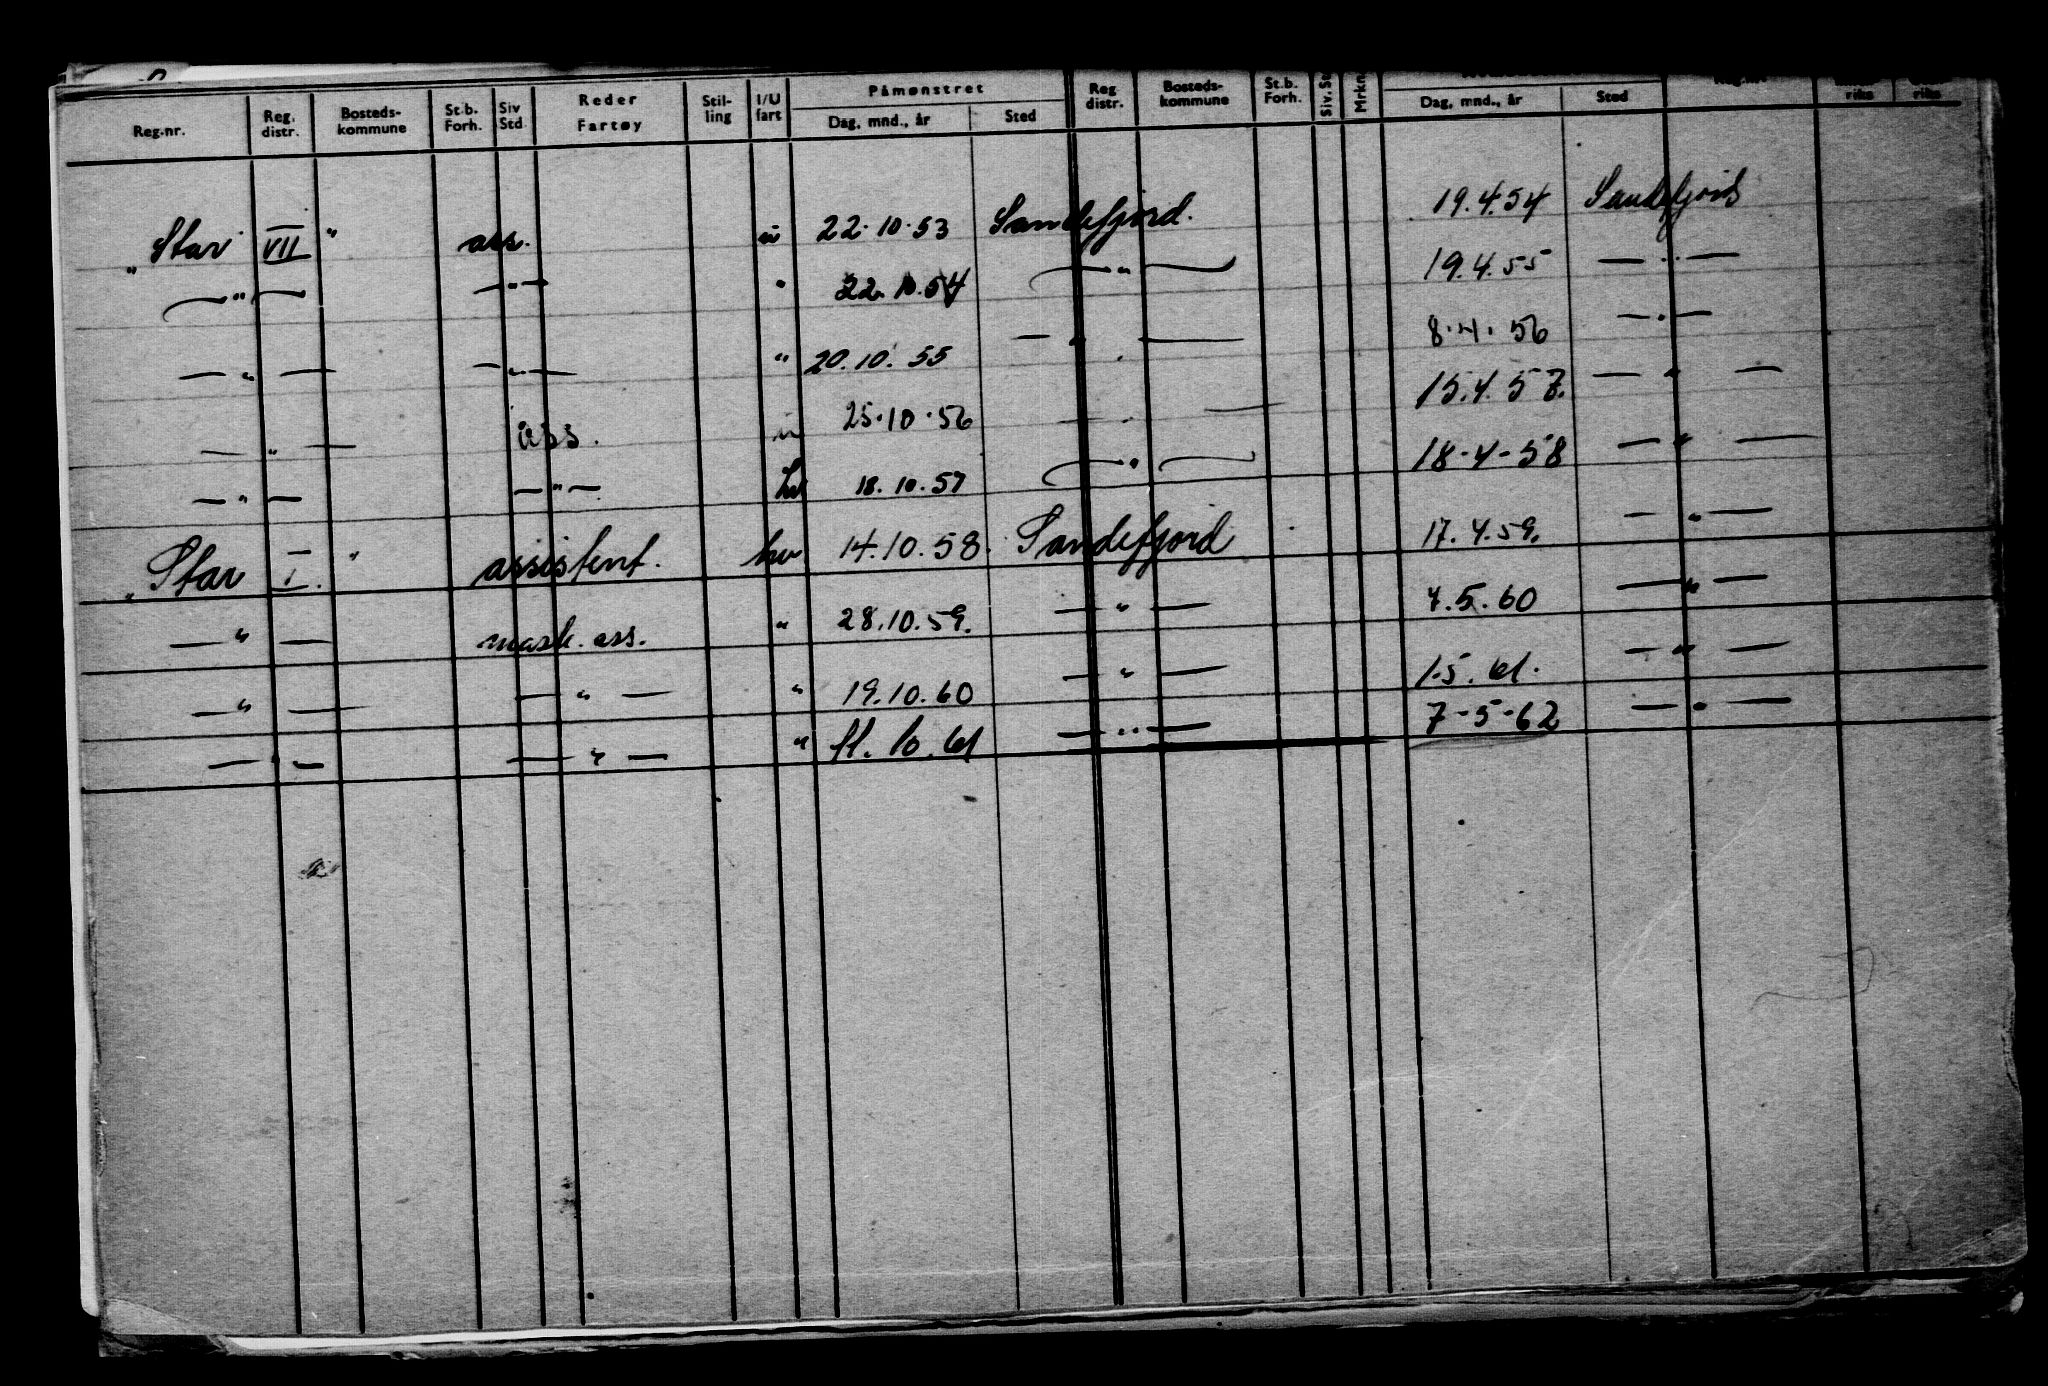 Reg.nr. Reg. distr. Bosteds-kommune St.b. Forh. Siv Std. Reder Fartøy Stil-ling I/U fart Påmønstret Dag, mnd., år Sted Reg distr. Bosteds-kommune St.b. Forh. Siv. St Mrkn Dag, mnd., år Sted riks riks
"Star" VII " ass. u 22.10.53 Sandefjord. 19.4.54 Sandefjord
— " — — " — " 22.10.54 — " — 19.4.55 — " —
— " — — " — " 20.10.55 — " — 8.4.56 — " —
— " — ass. u 25.10.56 — " — 15.4.57. — " —
— " — — " — hv 18.10.57 — " — 18-4-58 — " —
"Star I. " assistent. hv 14.10.58. Sandefjord 17.4.59. — " —
— " — mask. ass. " 28.10.59. — " — 7.5.60 — " —
— " — — " — " 19.10.60 — " — 1.5.61. — " —
— " — — " — " 11.10.61 — " — 7-5-62 — " —